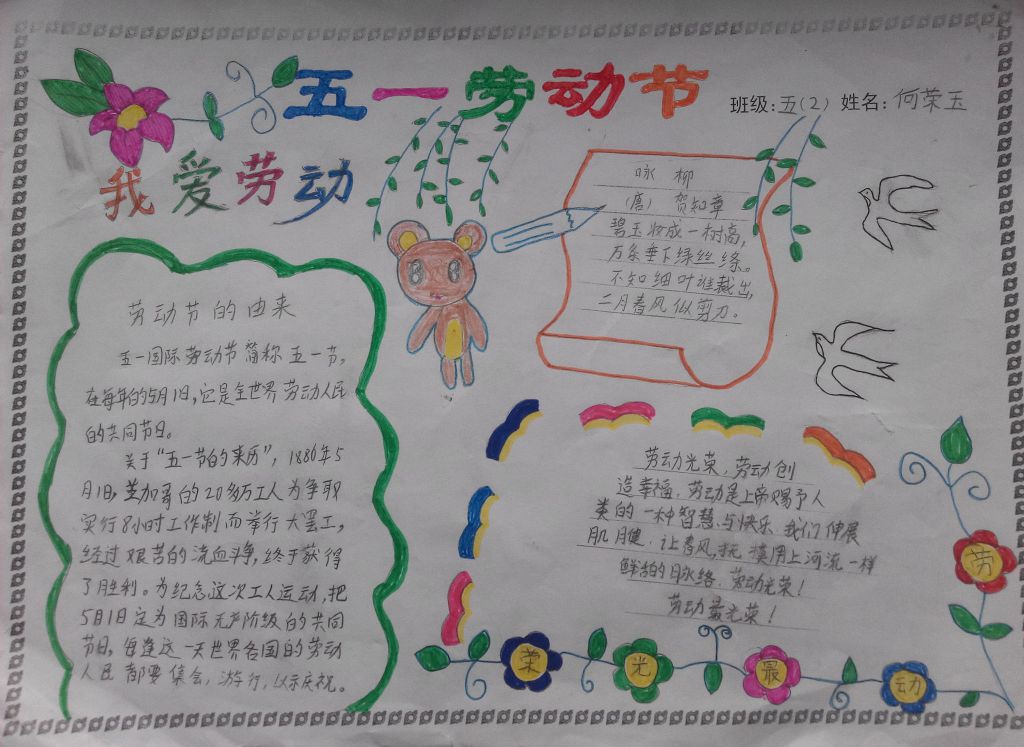 五一劳动节
班级:五(2) 姓名:何荣玉
我爱劳动
咏柳
(唐) 贺知章
碧玉妆成一树高,
万条垂下绿丝绦。
不知细叶谁裁出,
二月春风似剪刀。
劳动节的由来
五一国际劳动节简称五一节,
在每年的5月1日,它是全世界劳动人民
的共同节日。
关于“五一节的来历”,1886年5
月1日,芝加哥的20多万工人为争取
实行8小时工作制而举行大罢工,
经过艰苦的流血斗争,终于获得
了胜利。为纪念这次工人运动,把
5月1日定为国际无产阶级的共同
节日,每逢这一天世界各国的劳动
人民都要集会,游行,以示庆祝。
劳动光荣,劳动创
造幸福,劳动是上帝赐予人
类的一种智慧与快乐.我们伸展
肌腱.让春风抚摸用上河流一样
鲜活的脉络.劳动光荣!
劳动最光荣!
劳
动
最
光
荣